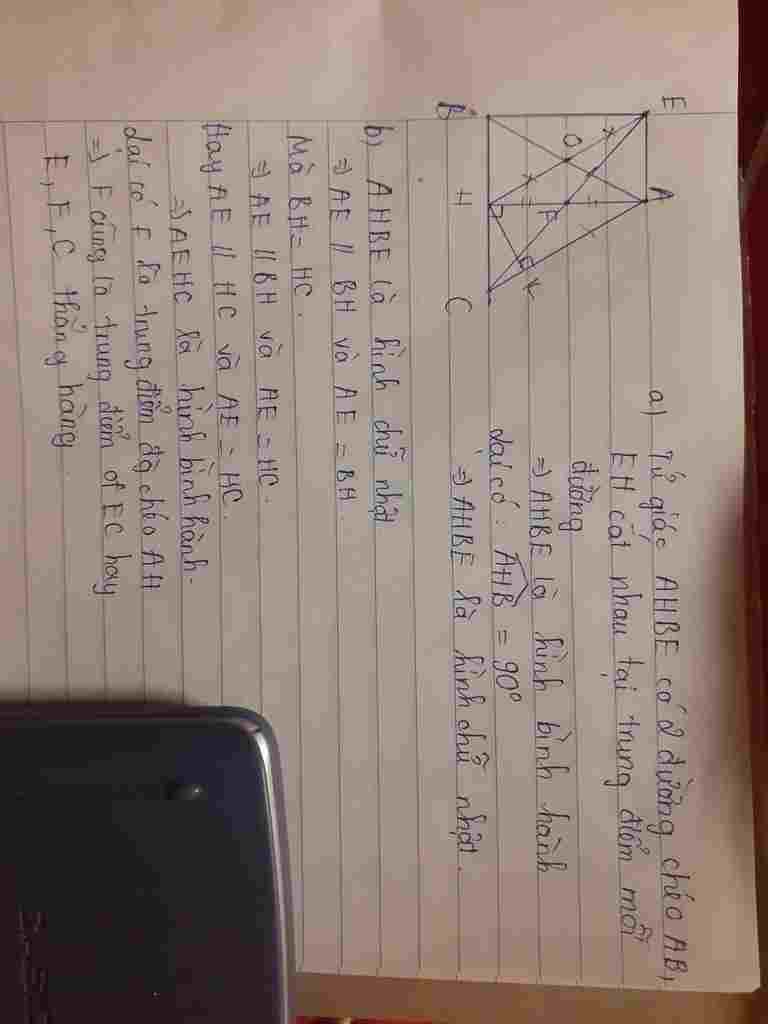 E A
O
F
K
B H C
a) Tứ giác AHBE có 2 đường chéo AB,
EH cắt nhau tại trung điểm mỗi
đường
=) AHBE là hình bình hành
lại có: AHB = 90°
=) AHBE là hình chữ nhật.
b) AHBE là hình chữ nhật
=) AE // BH và AE = BH.
Mà BH = HC.
=) AE // BH và AE = HC.
Hay AE // HC và AE = HC.
=) AEHC là hình bình hành.
Lại có F là trung điểm đg chéo AH
=) F cũng là trung điểm of EC hay
E, F, C thẳng hàng